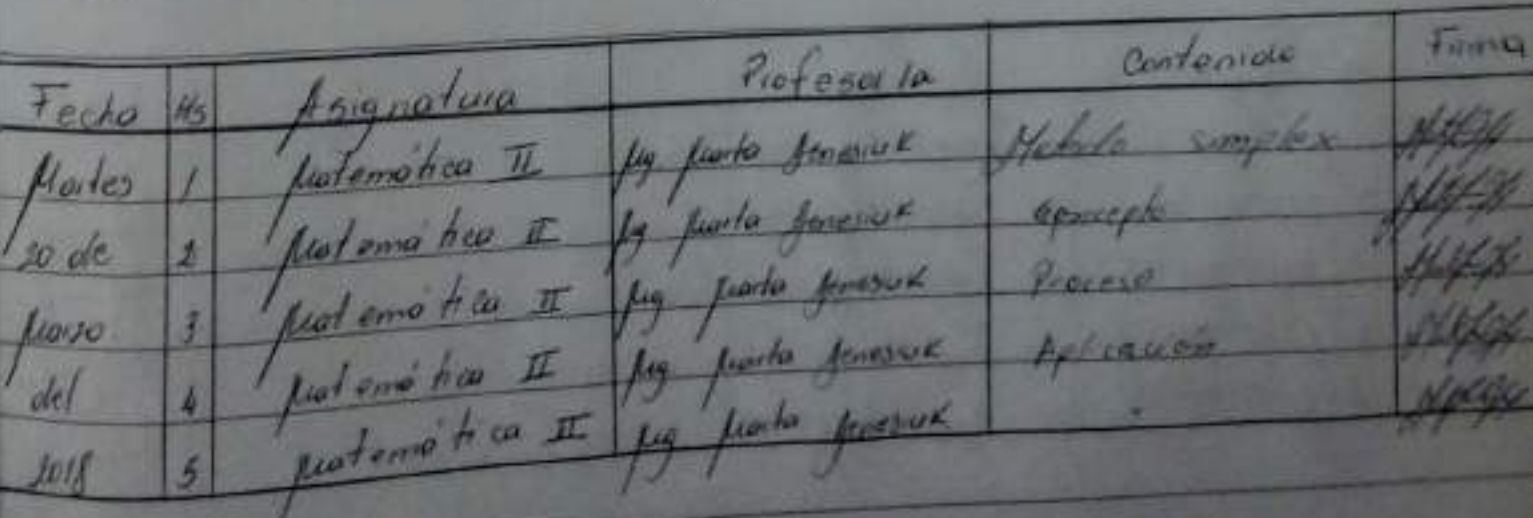 Fecha Hs Asignatura Profesor/a Contenido Firma
Martes 1 Matemática II Mg Marta Genesiuk Metodo simplex
20 de 2 Matemática II Mg Marta Genesiuk Concepto
Marzo 3 Matemática II Mg Marta Genesiuk Proceso
del 4 Matemática II Mg Marta Genesiuk Aplicación
2018 5 Matemática II Mg Marta Genesiuk